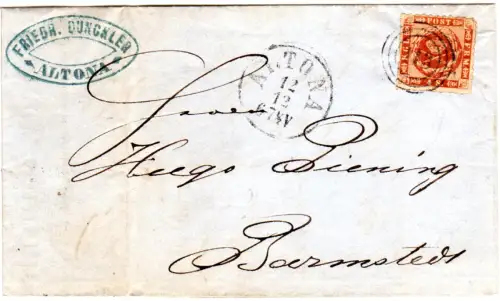 FRIEDR. DUNCKLER
ALTONA
ALTONA
12
12
POST
FRM
Hugo Piening
Barmstedt